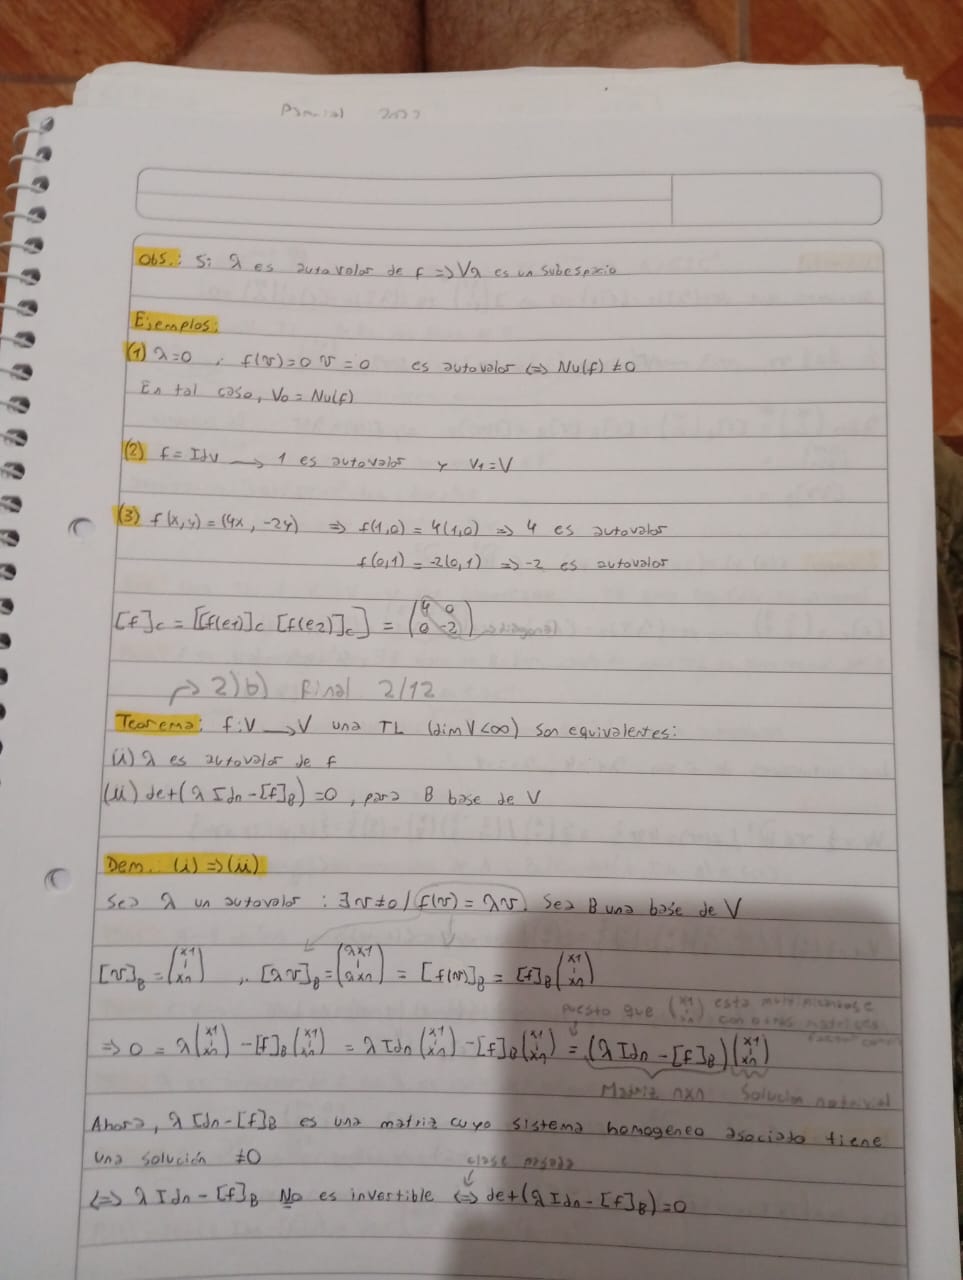 Parcial 2022
Obs.: Si λ es autovalor de f => Vλ es un subespacio
Ejemplos:
(1) λ=0 , f(v)=0 v=0 es autovalor <=> Nu(f) ≠0
En tal caso, V0=Nu(f)
(2) f=Idv → 1 es autovalor y V1=V
(3) f(x,y)=(4x, -2y) => f(1,0)=4(1,0) => 4 es autovalor
f(0,1)=-2(0,1) => -2 es autovalor
[f]c = [[f(e1)]c [f(e2)]c] = (4 0
0 -2) → diagonal
→ 2)b) Final 2/12
Teorema: f:V→V una TL (dim V<∞) son equivalentes:
(i) λ es autovalor de f
(ii) det(λ Idn-[f]B)=0, para B base de V
Dem. (i)=>(ii)
Sea λ un autovalor : ∃v≠0/ f(v)=λv. Sea B una base de V
[v]B=(x1 ⋮ xn) ∴ [λv]B=(λx1 ⋮ λxn) = [f(v)]B = [f]B (x1 ⋮ xn)
puesto que (x1 ⋮ xn) esta
con otras matrices
=> 0 = λ(x1 ⋮ xn) -[f]B(x1 ⋮ xn) = λ Idn (x1 ⋮ xn) -[f]B(x1 ⋮ xn) = (λ Idn -[f]B)(x1 ⋮ xn)
Matriz nxn Solucion no trivial
Ahora, λ Idn-[f]B es una matriz cuyo sistema homogeneo asociado tiene
una solución ≠0
clase pasada
<=> λ Idn-[f]B No es invertible <=> det(λ Idn-[f]B)=0